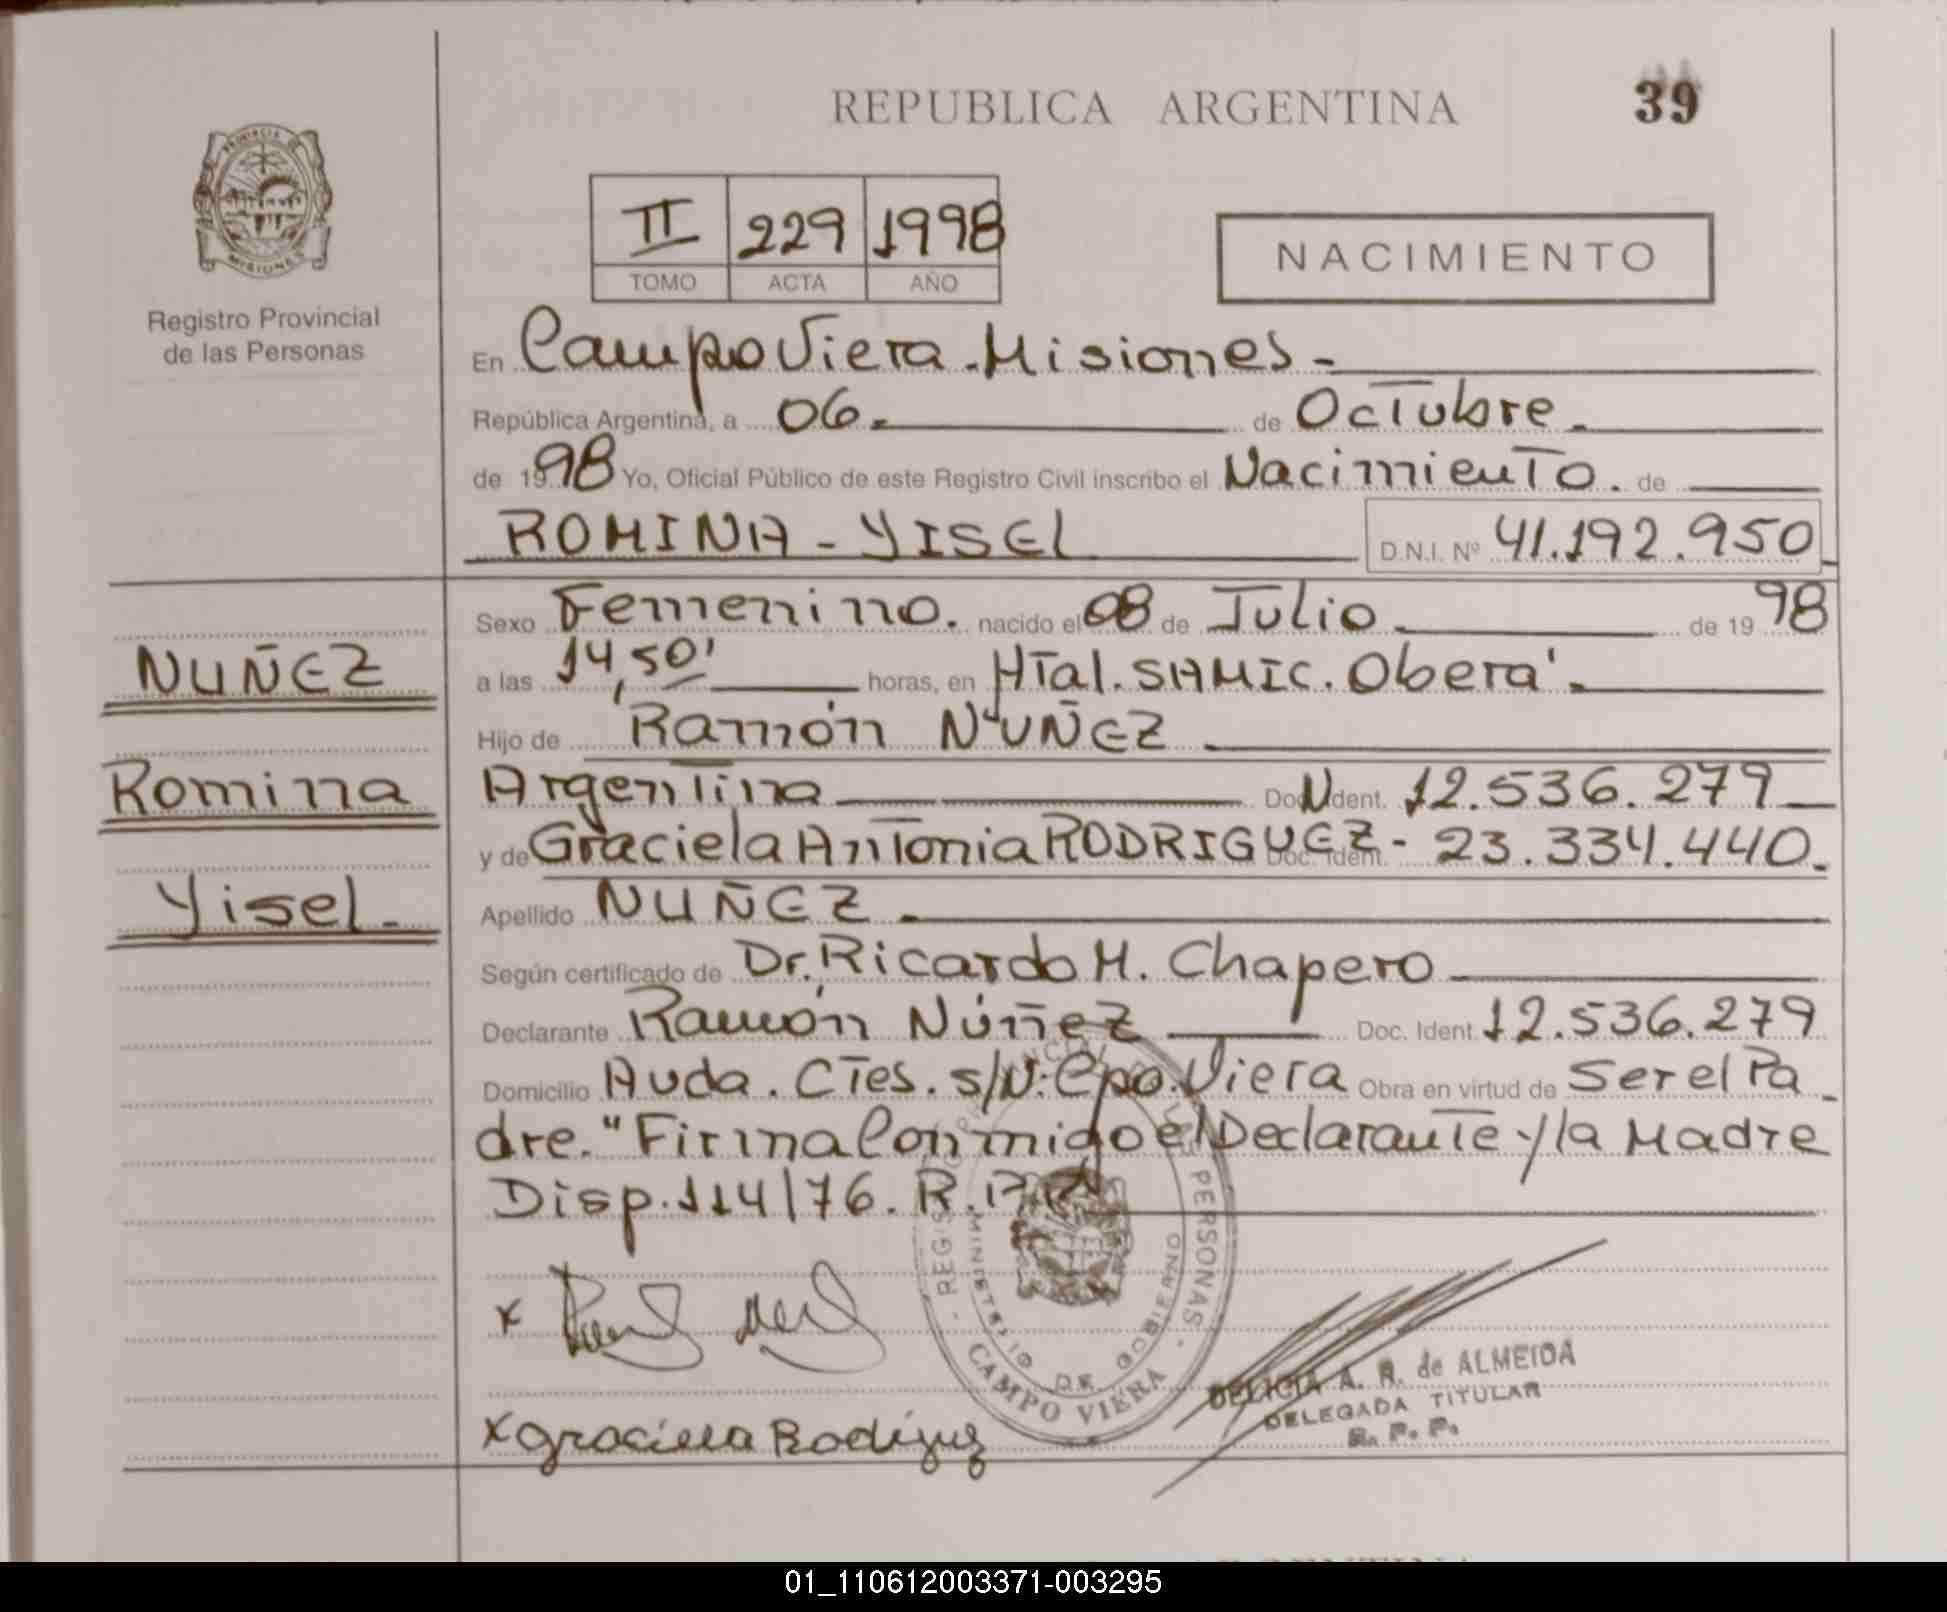 REPUBLICA ARGENTINA
39
PROVINCIA DE
MISIONES
Registro Provincial
de las Personas
II 229 1998
TOMO ACTA AÑO
NACIMIENTO
En Campo Viera - Misiones -
República Argentina, a 06. de Octubre.
de 1998 Yo, Oficial Público de este Registro Civil inscribo el Nacimiento. de
ROMINA - YISEL D.N.I. Nº 41.192.950
Sexo Femenino. nacido el 08 de Julio de 1998
NUÑEZ
a las 14,50' horas, en Htal. SAMIC. Oberá.
Hijo de Ramón NUÑEZ
Romina
Argentina Doc. Ident. N 12.536.279
y de Graciela Antonia RODRIGUEZ - Doc. Ident. 23.334.440.
Yisel -
Apellido NUÑEZ.
Según certificado de Dr. Ricardo M. Chapero
Declarante Ramón Núñez Doc. Ident. 12.536.279
Domicilio Avda. Ctes. s/N: Cpo. Viera Obra en virtud de Ser el Pa
dre. "Firma Conmigo el Declarante y la Madre
Disp. 114/76. R.P.P.
PERSONAS
MINISTERIO DE GOBIERNO
CAMPO VIERA
x
x Graciela Rodiguz
DELICIA A. R. de ALMEIDA
DELEGADA TITULAR
R. P. P.
01_110612003371-003295